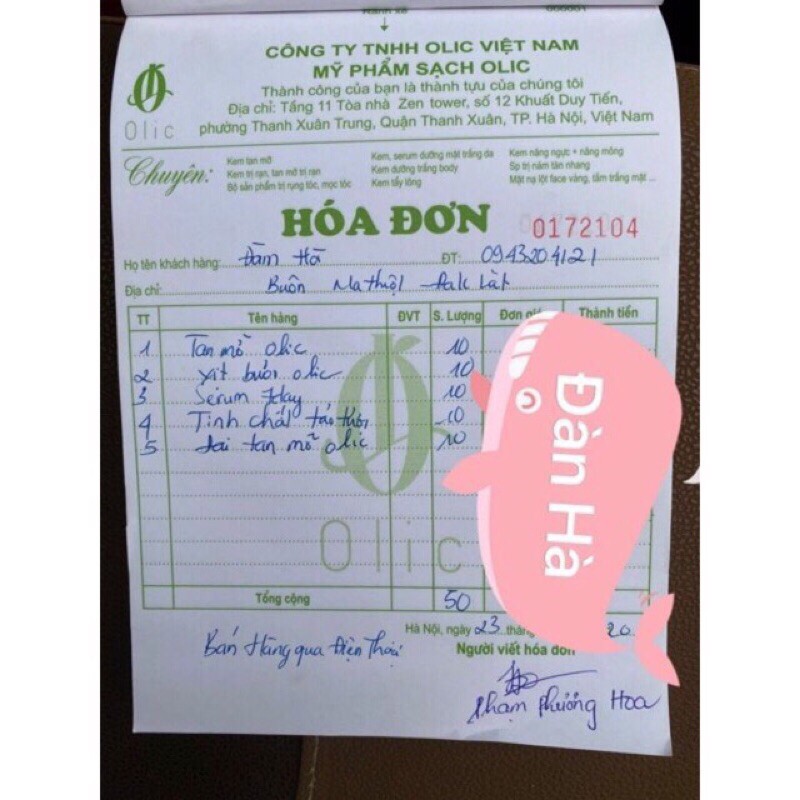 CÔNG TY TNHH OLIC VIỆT NAM
MỸ PHẨM SẠCH OLIC
Thành công của bạn là thành tựu của chúng tôi
Địa chỉ: Tầng 11 Tòa nhà Zen tower, số 12 Khuất Duy Tiến,
phường Thanh Xuân Trung, Quận Thanh Xuân, TP. Hà Nội, Việt Nam
Olic
Chuyên:
Kem tan mỡ
Kem trị rạn, tan mỡ trị rạn
Bộ sản phẩm trị rụng tóc, mọc tóc
Kem, serum dưỡng mặt trắng da
Kem dưỡng trắng body
Kem tẩy lông
Kem nâng ngực + nâng mông
Sp trị nám tàn nhang
Mặt nạ lột face vàng, tắm trắng mặt ...
HÓA ĐƠN 0172104
Họ tên khách hàng: Đàm Hà ĐT: 0943204121
Địa chỉ: Buôn Ma thuột
TT Tên hàng ĐVT S. Lượng Đơn Thành tiền
1 Tan mỡ olic 10
2 xịt bưởi olic 10
3 Serum 7day 10
4 Tinh chất 10
5 đai tan mỡ olic 10
Olic
Đàn Hà
Tổng cộng 50
Hà Nội, ngày 23 tháng 20
Bán Hàng qua Điện Thoại
Người viết hóa đơn
Phạm Phương Hoa